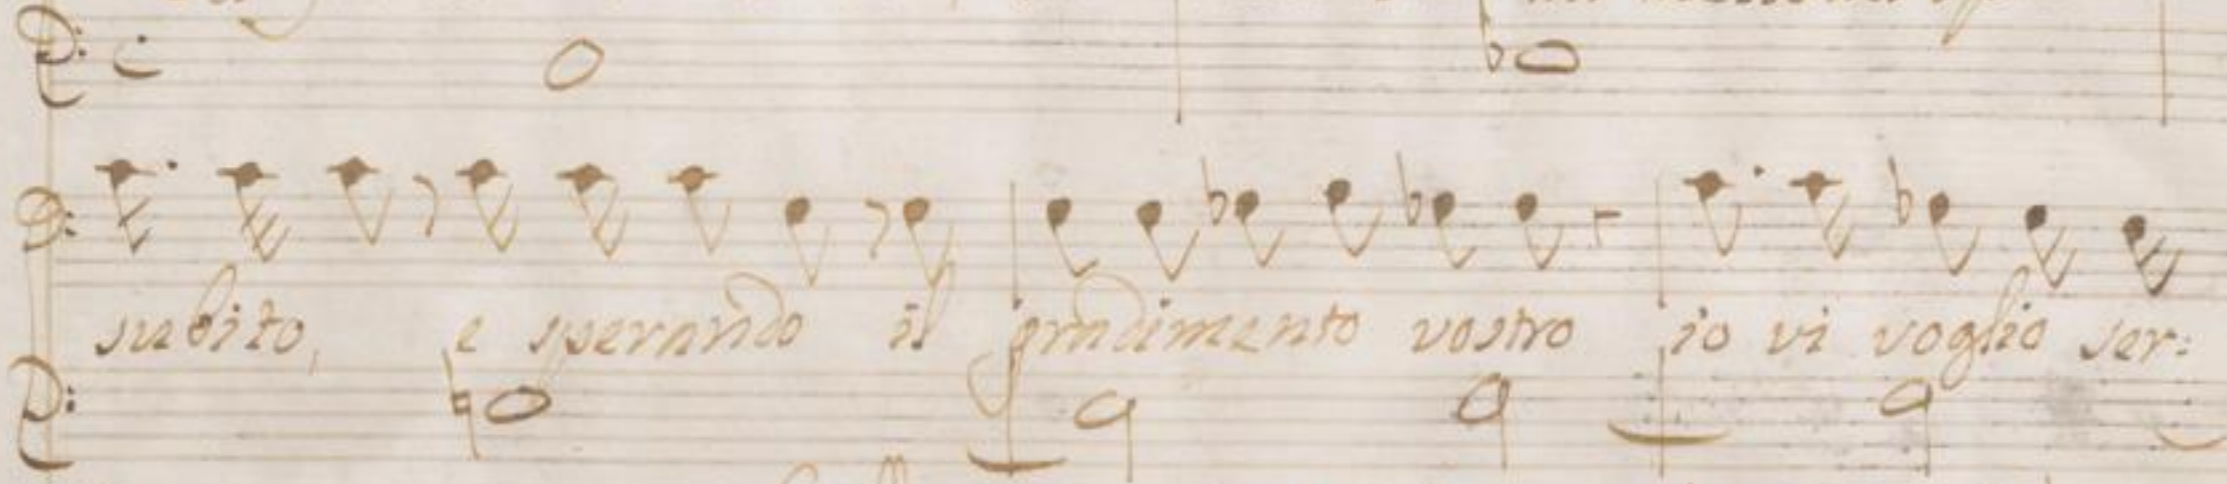 subito, e sperando il gradimento vostro io vi voglio ser: